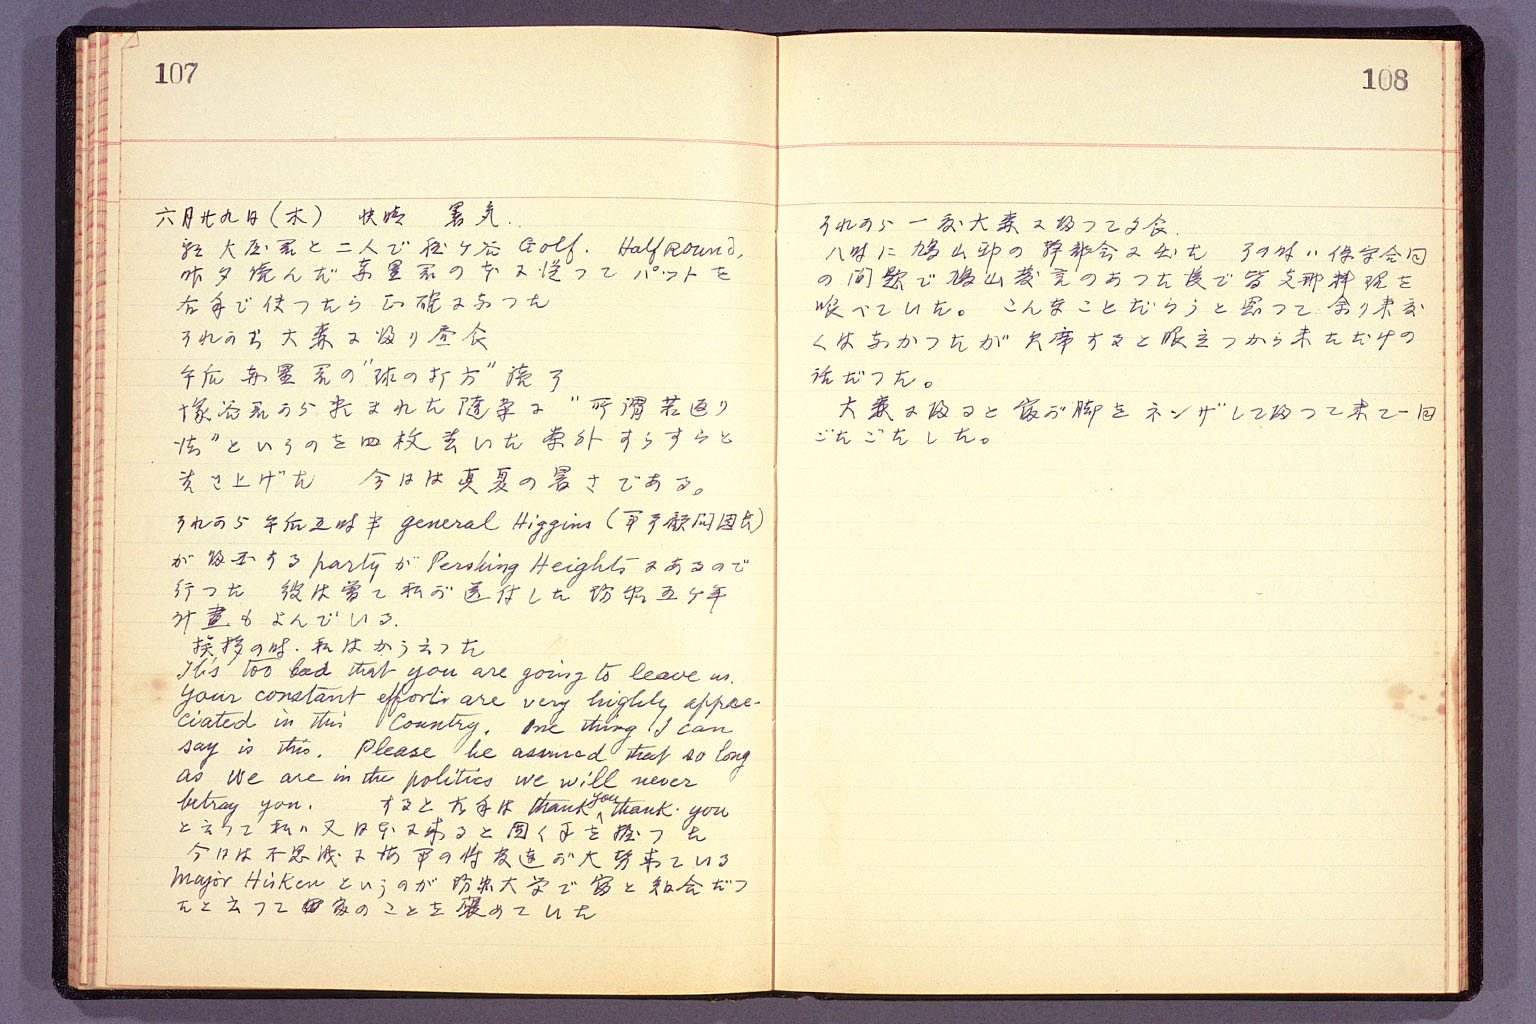 107
六月廿九日(木) 快晴 暑気.
大 君と二人で 程ヶ谷 Golf. Half Round,
昨夕読んだ 君の本に従って パットを
右手で使つたら 正確になつた
それから 大森に帰り昼食
午后 君の"球の打方" 読了
君から頼まれた随筆に "所謂若返り
法"というのを四枚書いた 案外すらすらと
書き上げた 今日は真夏の暑さである。
それから 午后五時半 general Higgins (軍事顧問団長)
が 帰国する party が Pershing Heights にあるので
行つた 彼は曽て私が送付した 防衛五ヶ年
計畫もよんでいる.
挨拶の時. 私はかう云つた
It's too bad that you are going to leave us.
Your constant efforts are very highly appre-
ciated in this Country. One thing I can
say is this. Please be assured that so long
as we are in the politics we will never
betray you. すると 右手は thank you thank you
と云つて 私ハ又日本に来ると 固く手を握つた
今日は不思議に 海軍の将 友達が大勢来ている
Major Hüsken というのが 防衛大学で 知会だつ
たと云つて 家のことを褒めていた
108
それから 一度大森に帰つて夕食.
八時に鳩山邸の幹部会に出た その時ハ保守合同
の問題で鳩山発言のあつた後で皆支那料理を
喰べていた。 こんなことだらうと思つて 余り来た
くはなかつたが 欠席すると眼立つから来ただけの
話だつた。
大森に帰ると 家が脚をネンザして帰つて来て一同
ごたごたした。